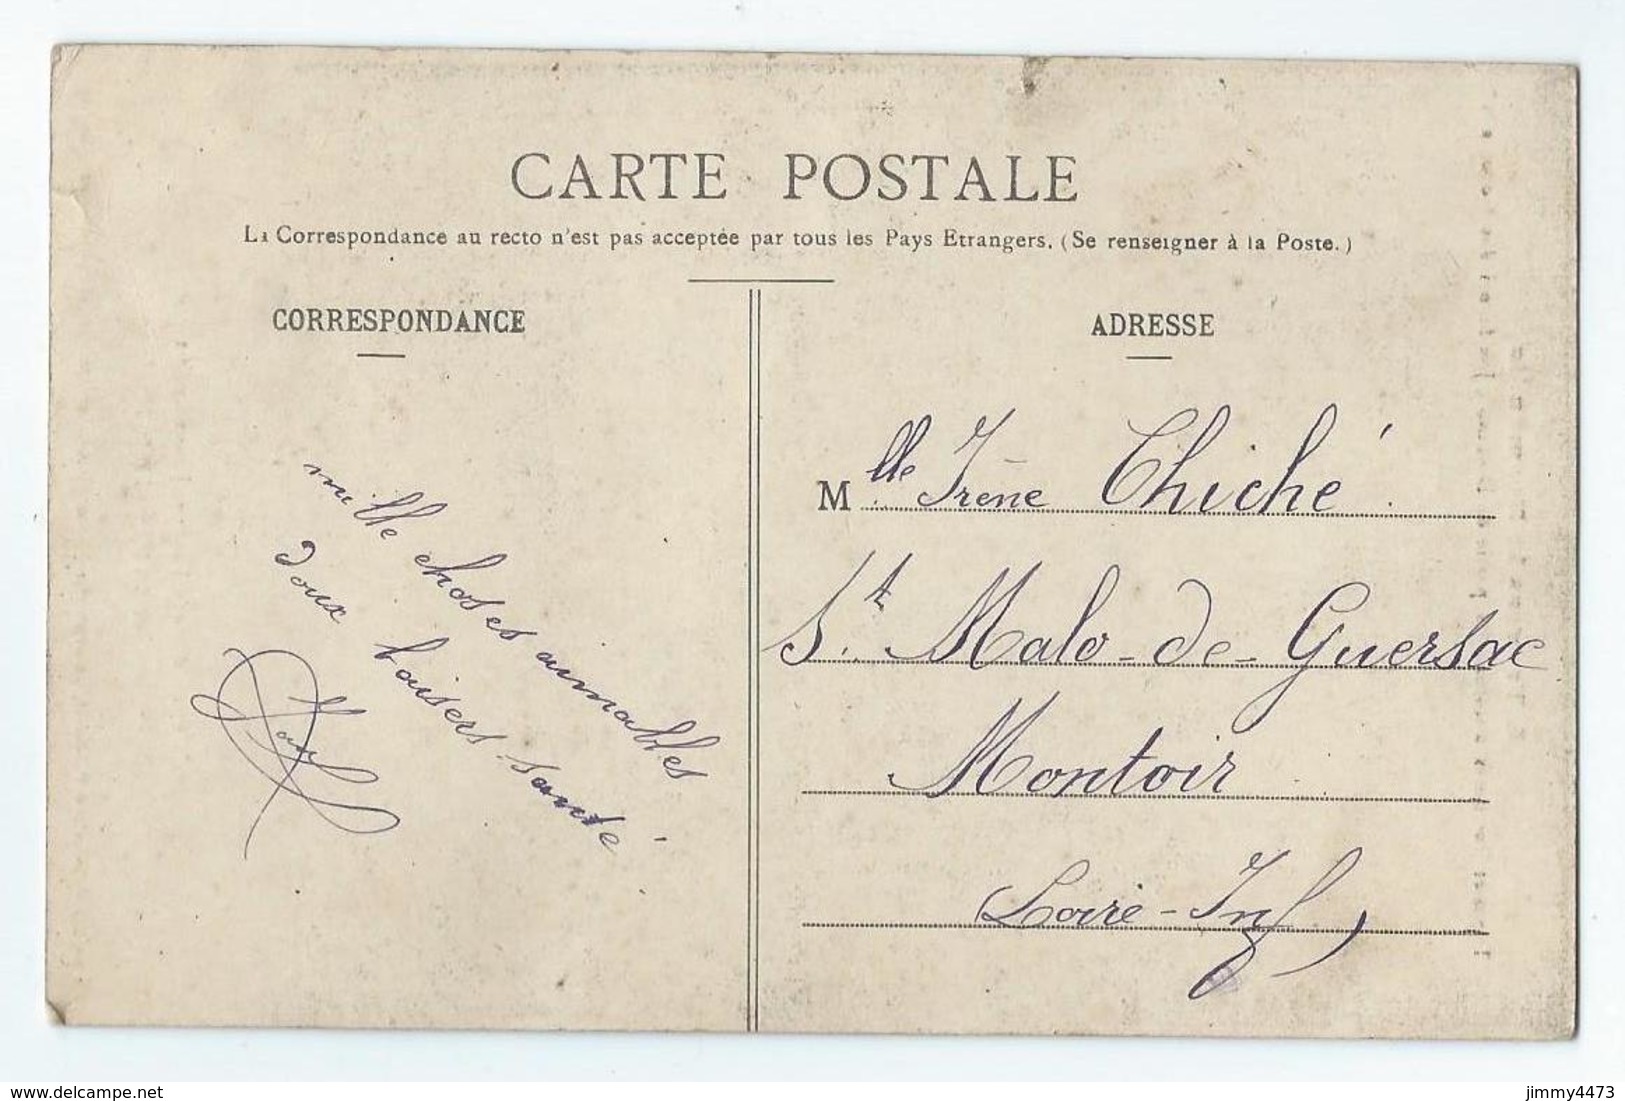 CARTE POSTALE
La Correspondance au recto n'est pas acceptée par tous les Pays Etrangers. (Se renseigner à la Poste.)
CORRESPONDANCE
mille choses aimables
doux baisers santé
Paul
ADRESSE
Mlle Irène Chiché
St. Malo-de-Guersac
Montoir
(Loire-Inf)
www.delcampe.net
jimmy4473